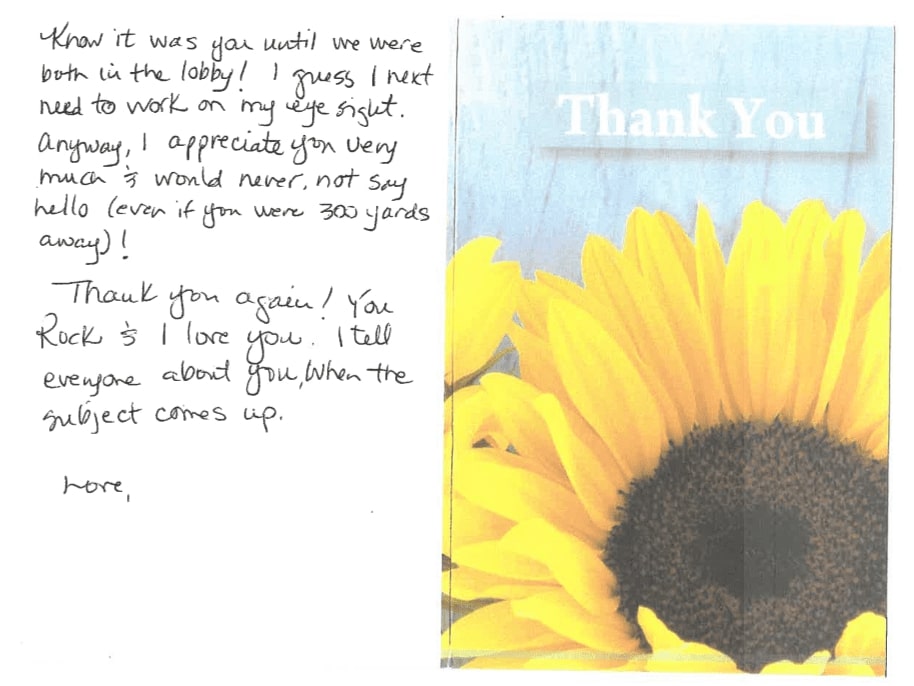 Know it was you until we were
both in the lobby! I guess I next
need to work on my eye sight.
Anyway, I appreciate you very
much & would never, not say
hello (even if you were 300 yards
away)!
Thank you again! You
Rock & I love you. I tell
everyone about you, when the
subject comes up.
Love,
Thank You